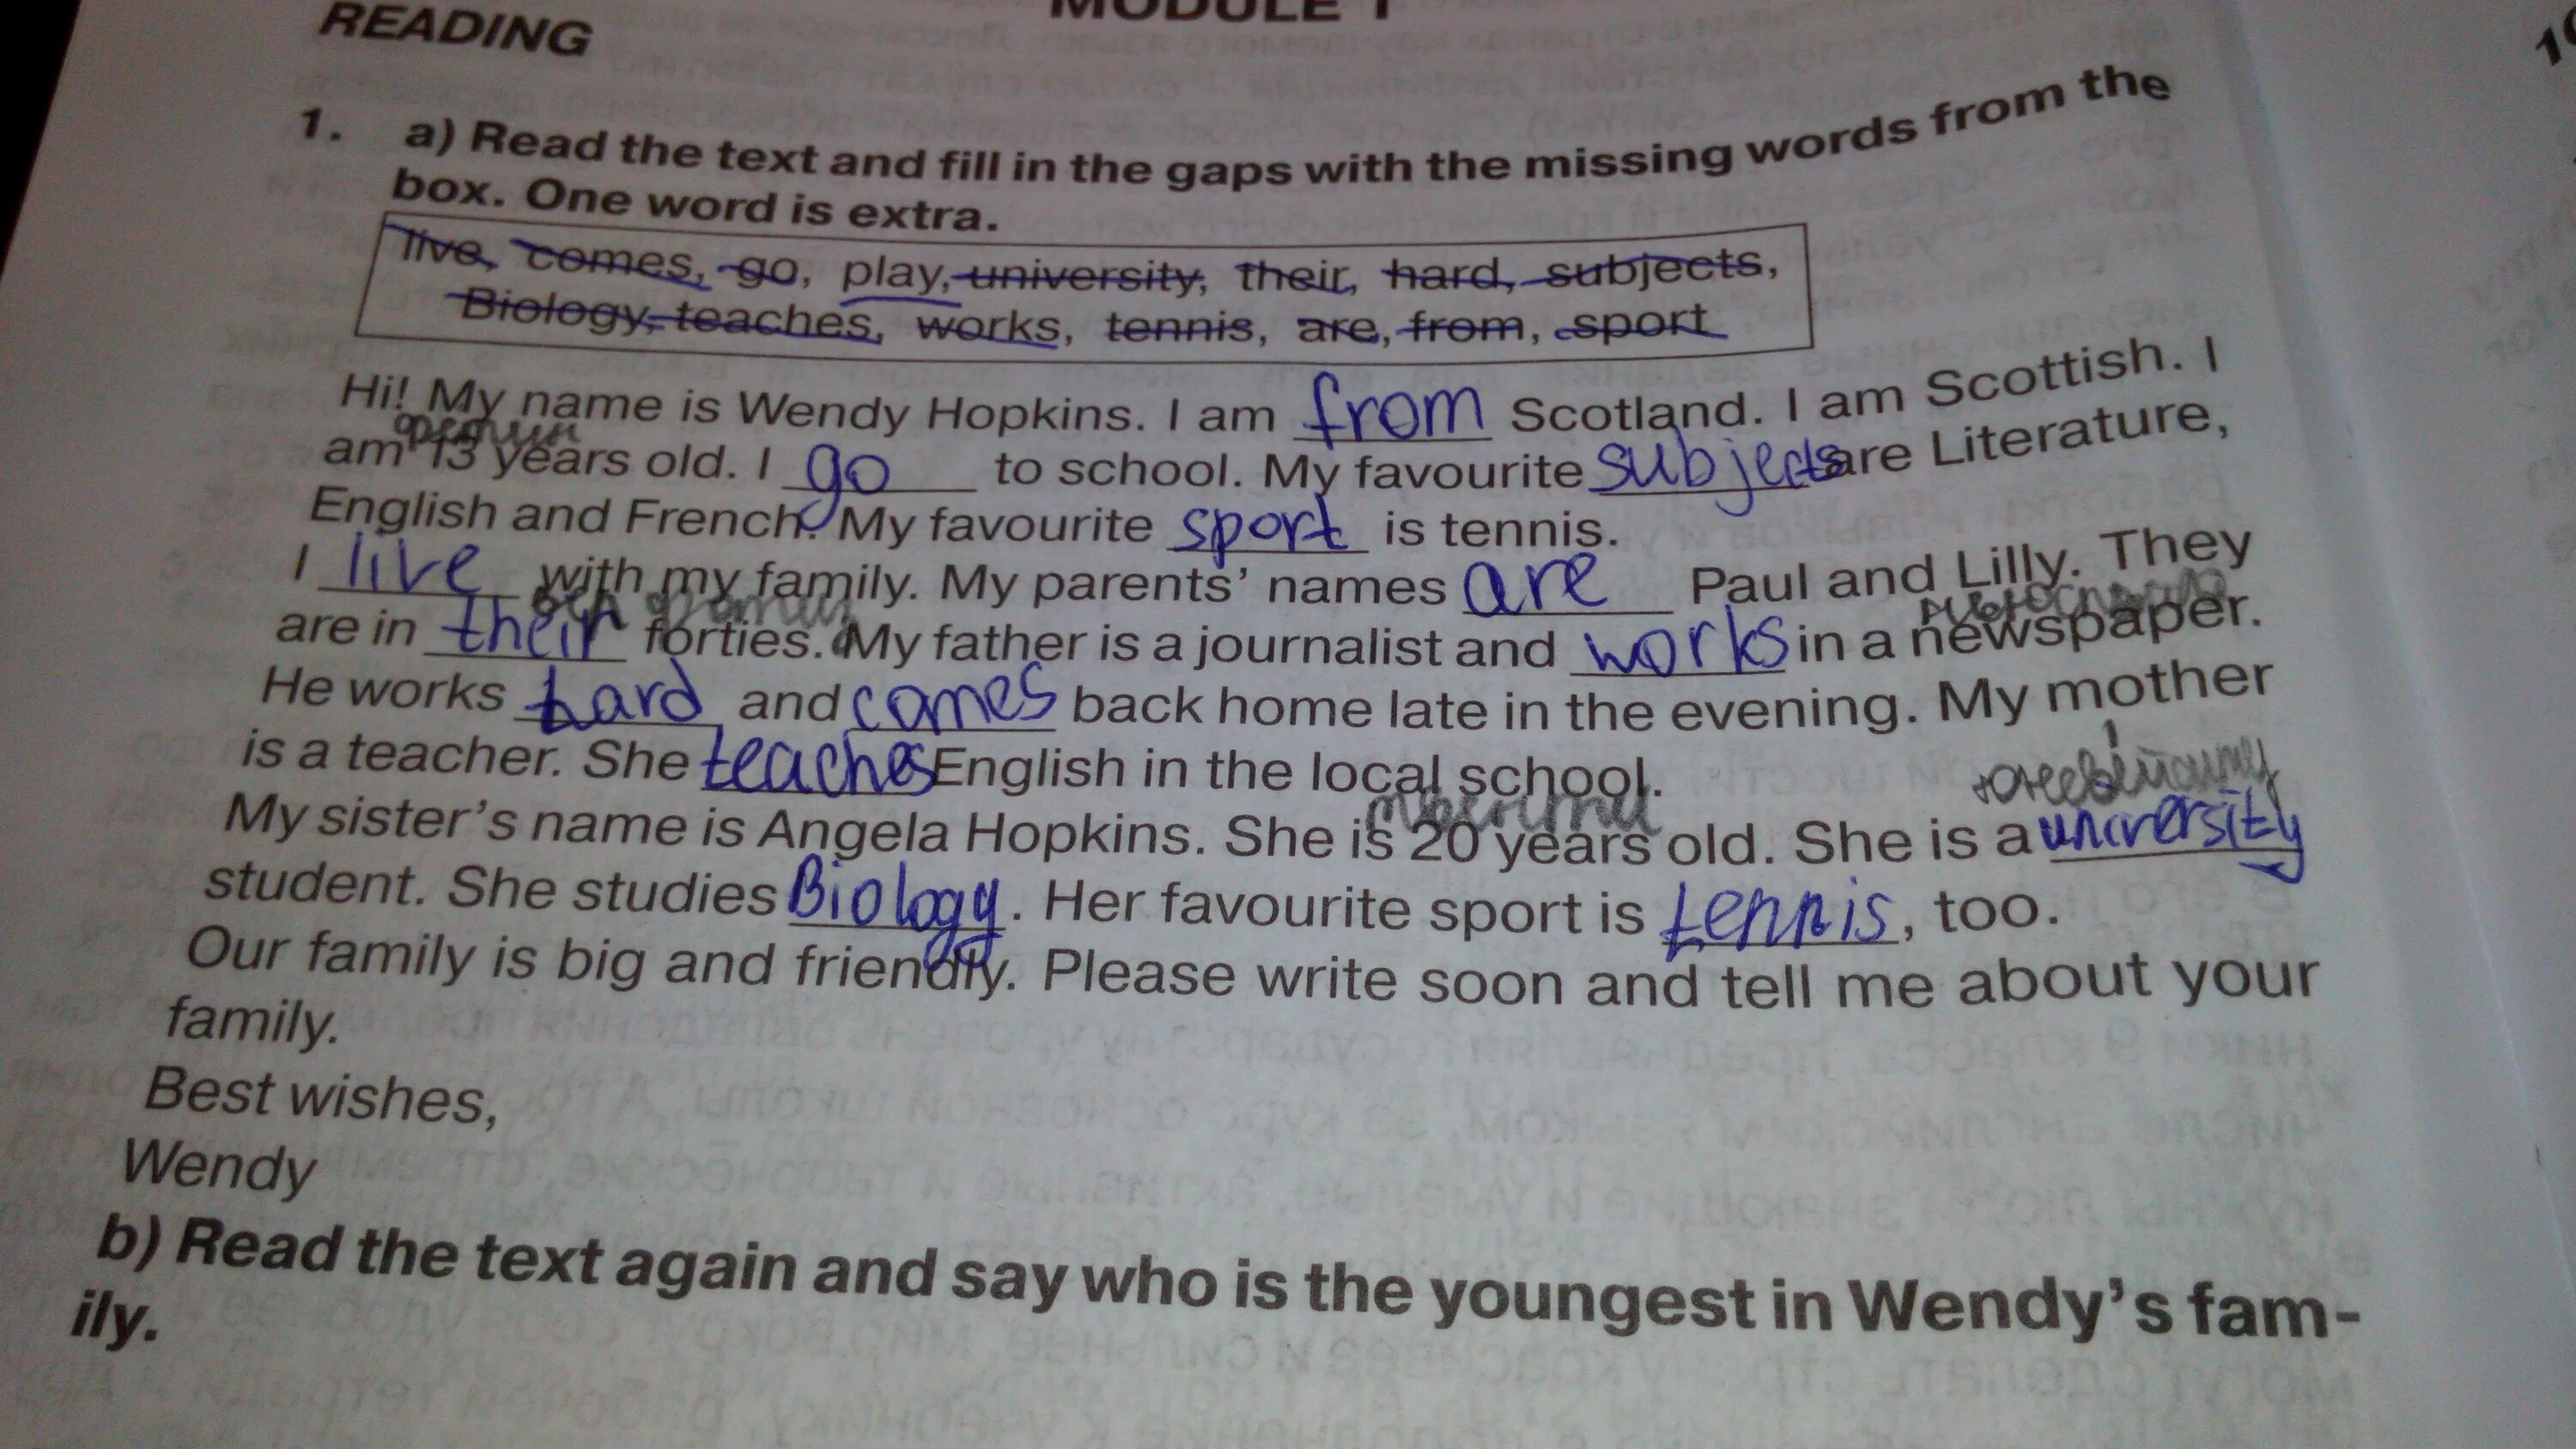 MODULE 1
READING
1. a) Read the text and fill in the gaps with the missing words from the
box. One word is extra.
live, comes, go, play, university, their, hard, subjects,
Biology, teaches, works, tennis, are, from, sport
Hi! My name is Wendy Hopkins. I am from Scotland. I am Scottish. I
am 13 years old. I go to school. My favourite subjects are Literature,
English and French. My favourite sport is tennis.
I live with my family. My parents' names are Paul and Lilly. They
are in their forties. My father is a journalist and works in a newspaper.
He works hard and comes back home late in the evening. My mother
is a teacher. She teaches English in the local school.
My sister's name is Angela Hopkins. She is 20 years old. She is a university
student. She studies Biology. Her favourite sport is tennis, too.
Our family is big and friendly. Please write soon and tell me about your
family.
Best wishes,
Wendy
b) Read the text again and say who is the youngest in Wendy's fam-
ily.